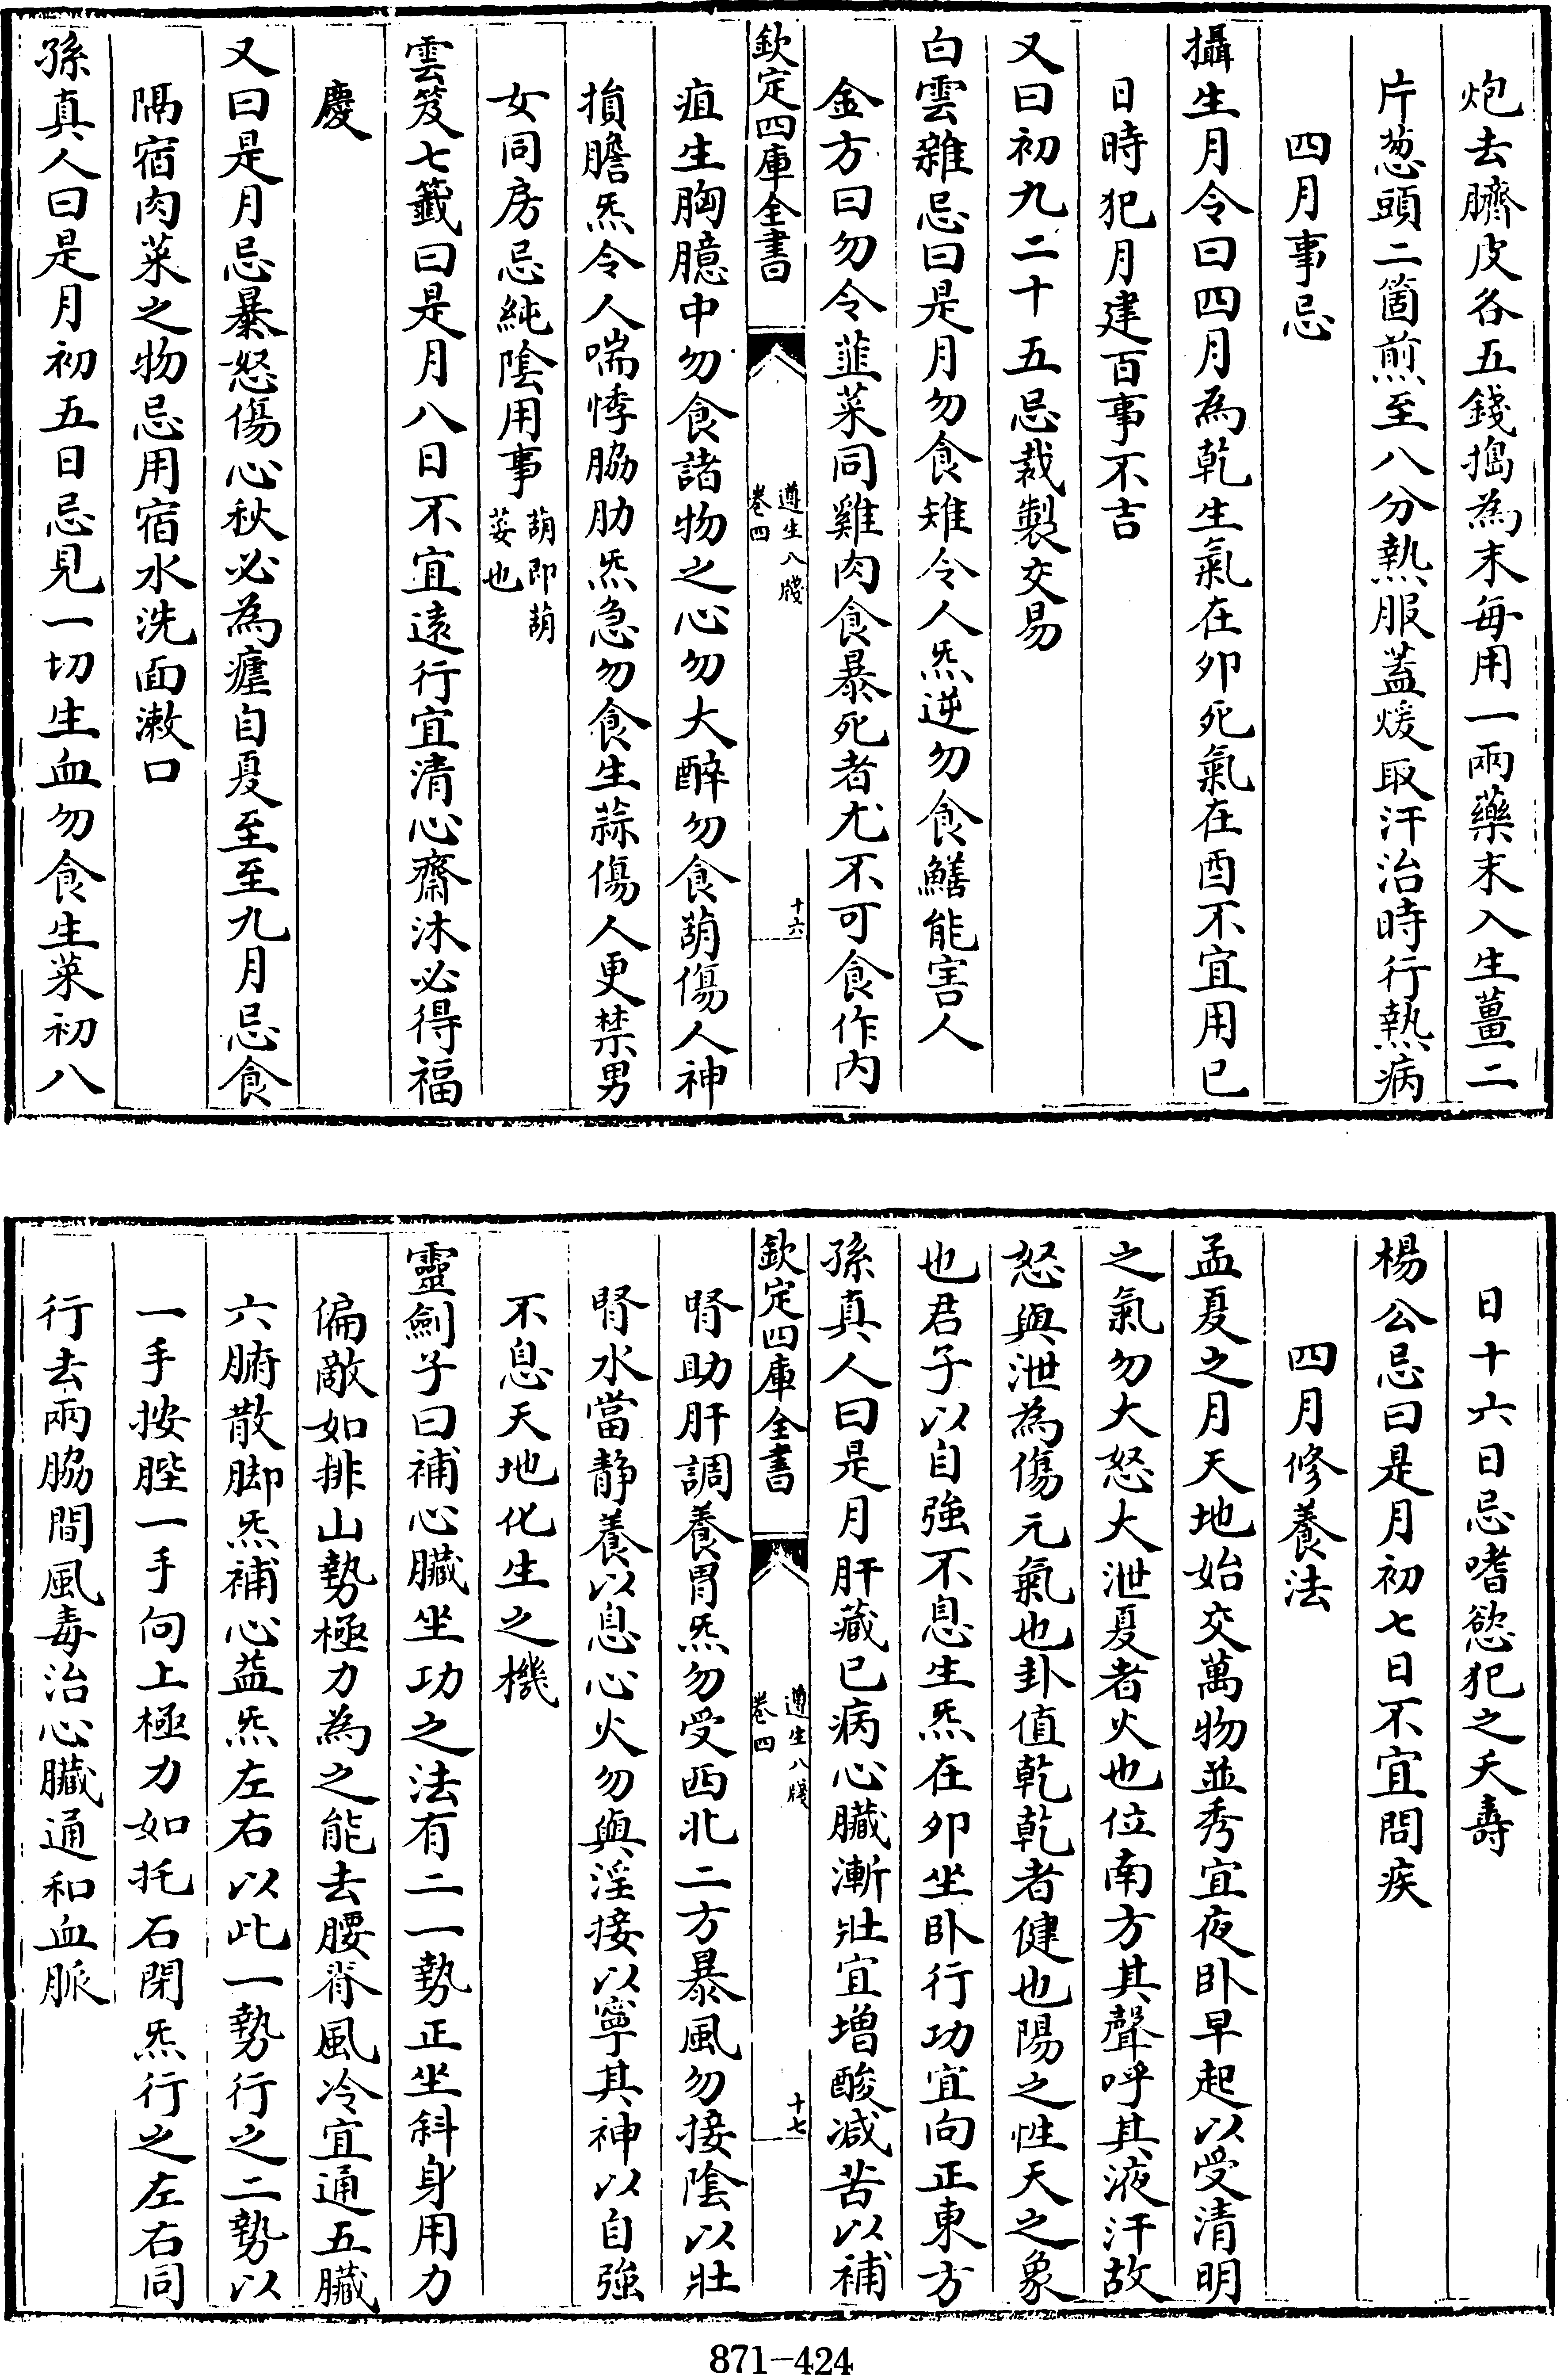 炮去臍皮各五錢搗為末毎用一兩藥末入生薑二
片葱頭二箇煎至八分熱服蓋煖取汗治時行熱病
四月事忌
攝生月令曰四月為乾生氣在夘死氣在酉不宜用巳
日時犯月建百事不吉
又曰初九二十五忌裁製交易
白雲雜忌曰是月勿食雉令人炁逆勿食鱔能害人
金方曰勿令韮菜同雞肉食暴死者尤不可食作内
欽定四庫全書
遵生八牋
卷四
十六
疽生胸臆中勿食諸物之心勿大醉勿食葫傷人神
損膽炁令人喘悸脇肋炁急勿食生蒜傷人更禁男
女同房忌純陰用事葫即葫
荽也
雲笈七籤曰是月八日不宜遠行宜清心齋沐必得福
慶
又曰是月忌暴怒傷心秋必為瘧自夏至至九月忌食
隔宿肉菜之物忌用宿水洗面漱口
孫真人曰是月初五日忌見一切生血勿食生菜初八
日十六日忌嗜慾犯之夭壽
楊公忌曰是月初七日不宜問疾
四月修養法
孟夏之月天地始交萬物並秀宜夜卧早起以受清明
之氣勿大怒大泄夏者火也位南方其聲呼其液汗故
怒與泄為傷元氣也卦值乾乾者健也陽之性天之象
也君子以自強不息生炁在夘坐卧行功宜向正東方
孫真人曰是月肝藏已病心臟漸壯宜増酸減苦以補
欽定四庫全書
遵生八牋
卷四
十七
腎助肝調養胃炁勿受西北二方暴風勿接陰以壯
腎水當静養以息心火勿與淫接以寧其神以自強
不息天地化生之機
靈劍子曰補心臟坐功之法有二一勢正坐斜身用力
偏敵如排山勢極力為之能去腰脊風冷宜通五臟
六腑散脚炁補心益炁左右以此一勢行之二勢以
一手按䏶一手向上極力如托石閉炁行之左右同
行去兩脇間風毒治心臟通和血脈
871-424